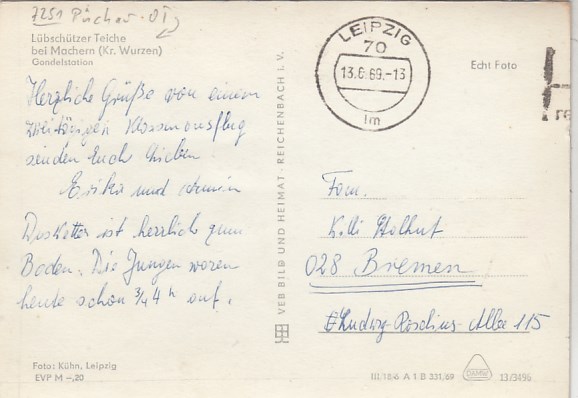 7251 Püchau-OT
Lübschützer Teiche
bei Machern (Kr. Wurzen)
Gondelstation
LEIPZIG
70
13.6.69.-13
lm
Echt Foto
Herzliche Grüße von einem
zweitägigen Klassenausflug
senden Euch Lieben
Erika und Armin
Das Wetter ist herrlich zum
Baden. Die Jungen waren
heute schon 3/4 4 h auf.
VEB BILD UND HEIMAT · REICHENBACH i. V.
Fam.
028 Bremen
Ludwig-Roselius-Allee 115
Foto: Kühn, Leipzig
EVP M -,20
III/18/6 A 1 B 331/69
13/3496